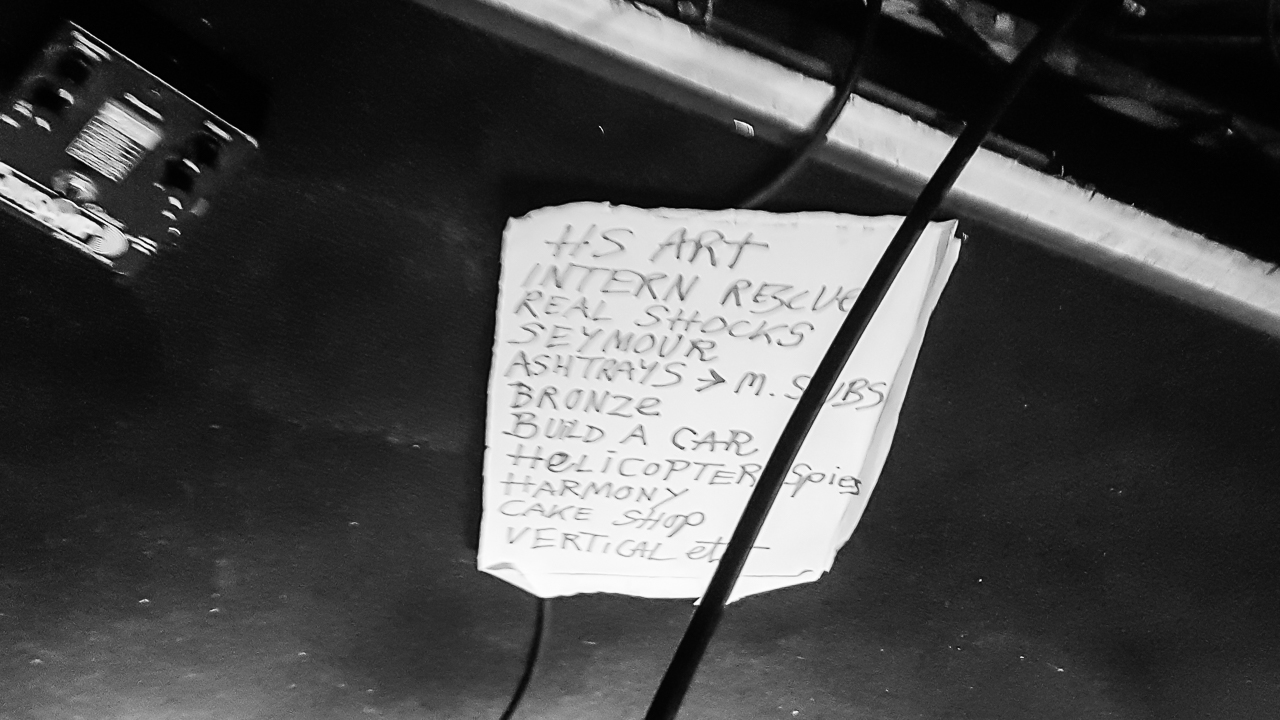 HS ART
INTERN RESCUE
REAL SHOCKS
SEYMOUR
ASHTRAYS > M. SUBS
BRONZe
BUILD A CAR
HeLiCOPTER Spies
HARMONY
CAKE SHOP
VERTiCAL etc